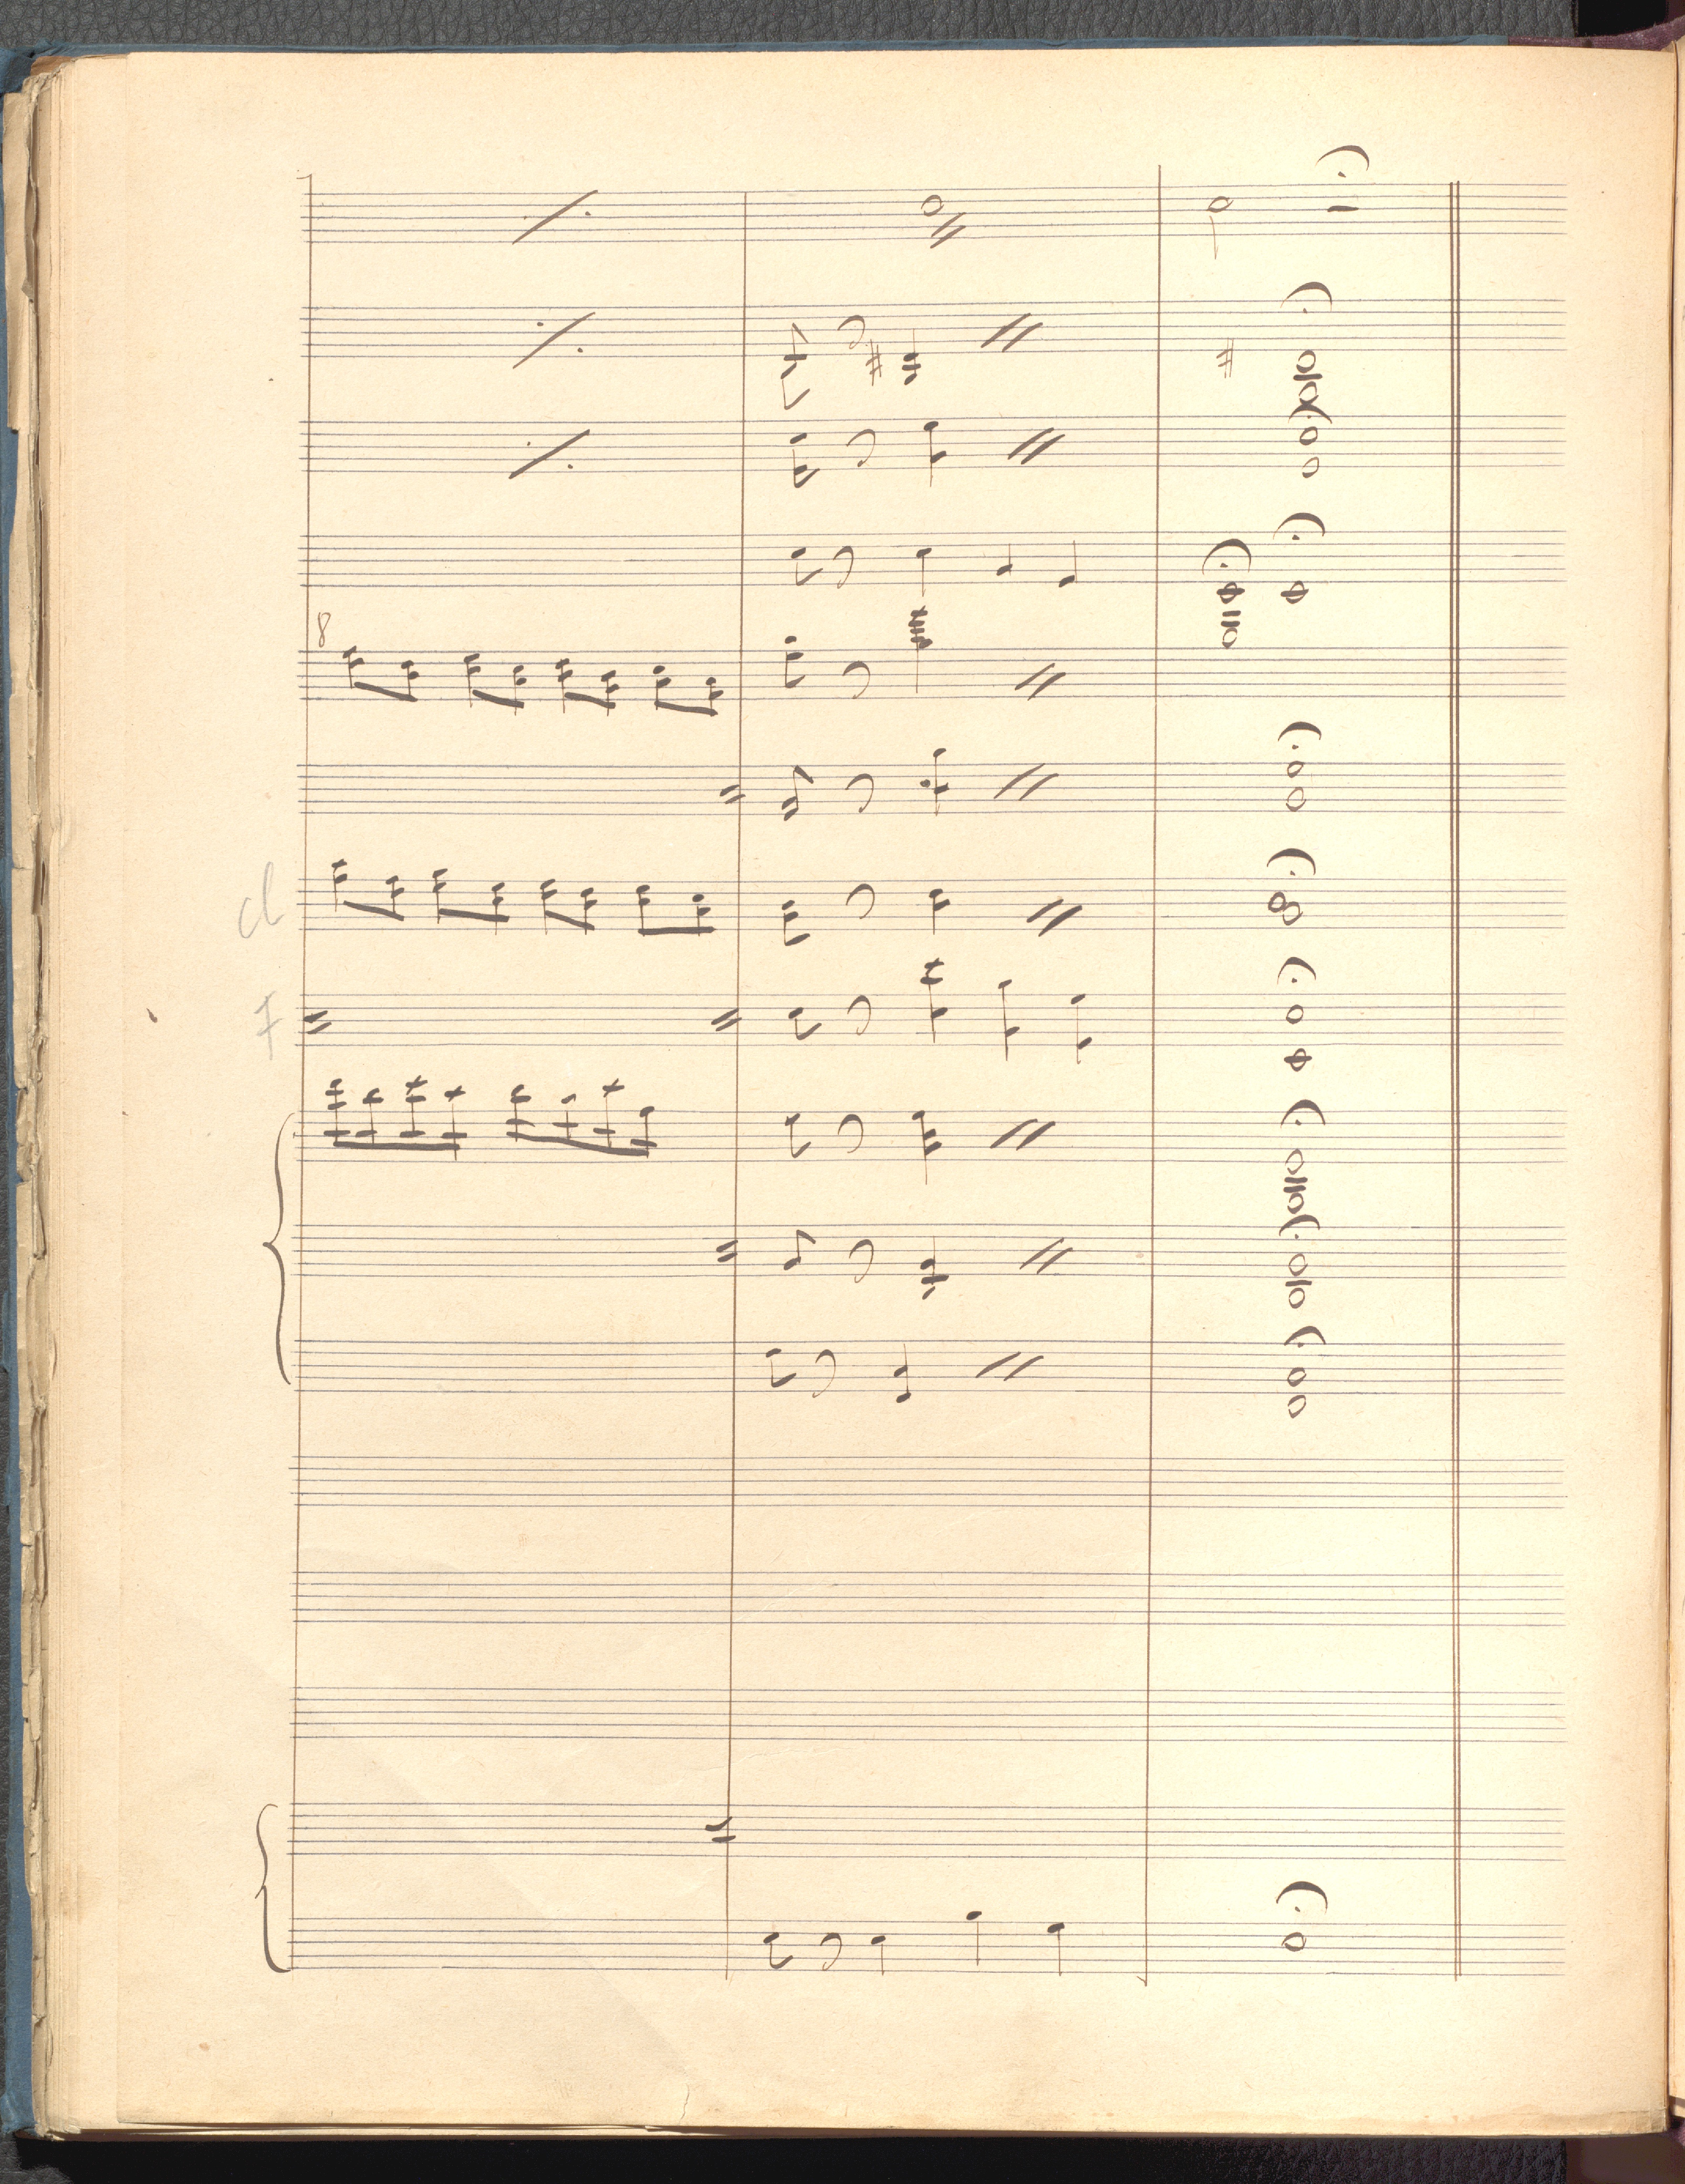 8
cl